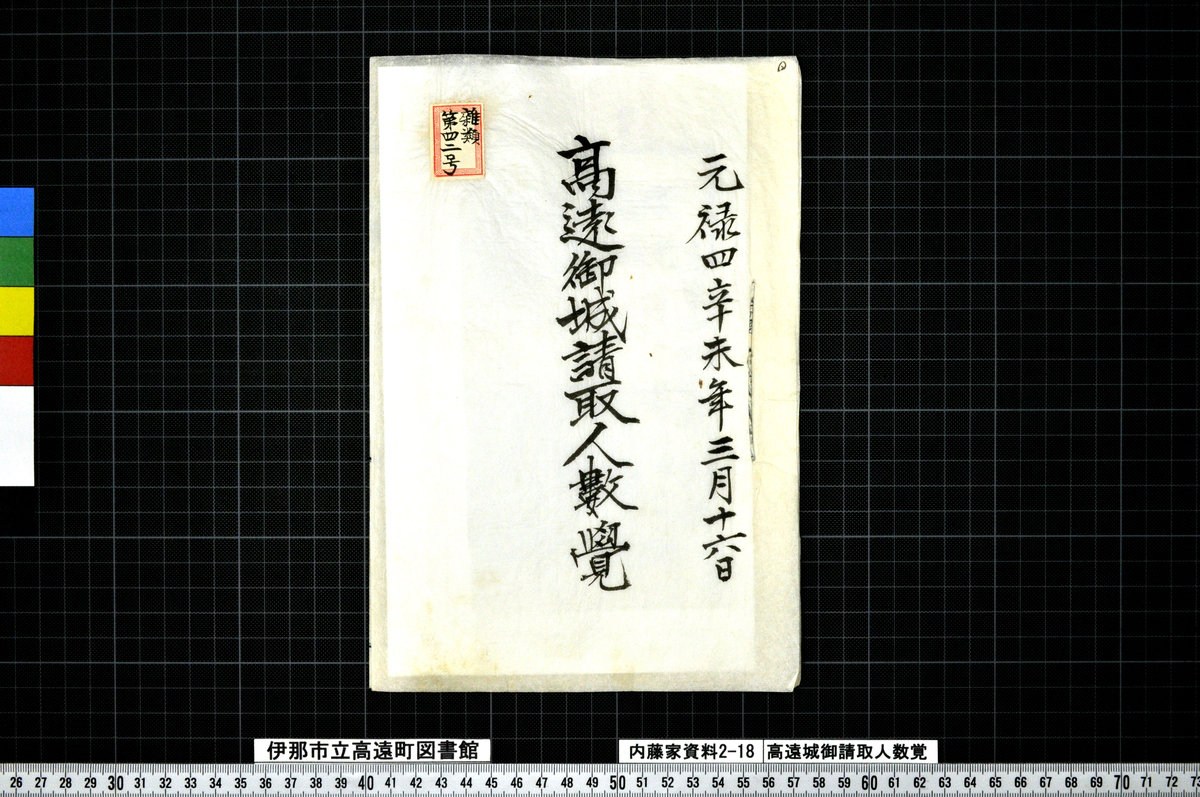 元禄四辛未年三月十六日
高遠御城請取人數覺
雜類
第四二号
伊那市立高遠町図書館
内藤家資料2-18
高遠城御請取人数覚
26 27 28 29 30 31 32 33 34 35 36 37 38 39 40 41 42 43 44 45 46 47 48 49 50 51 52 53 54 55 56 57 58 59 60 61 62 63 64 65 66 67 68 69 70 71 72 73